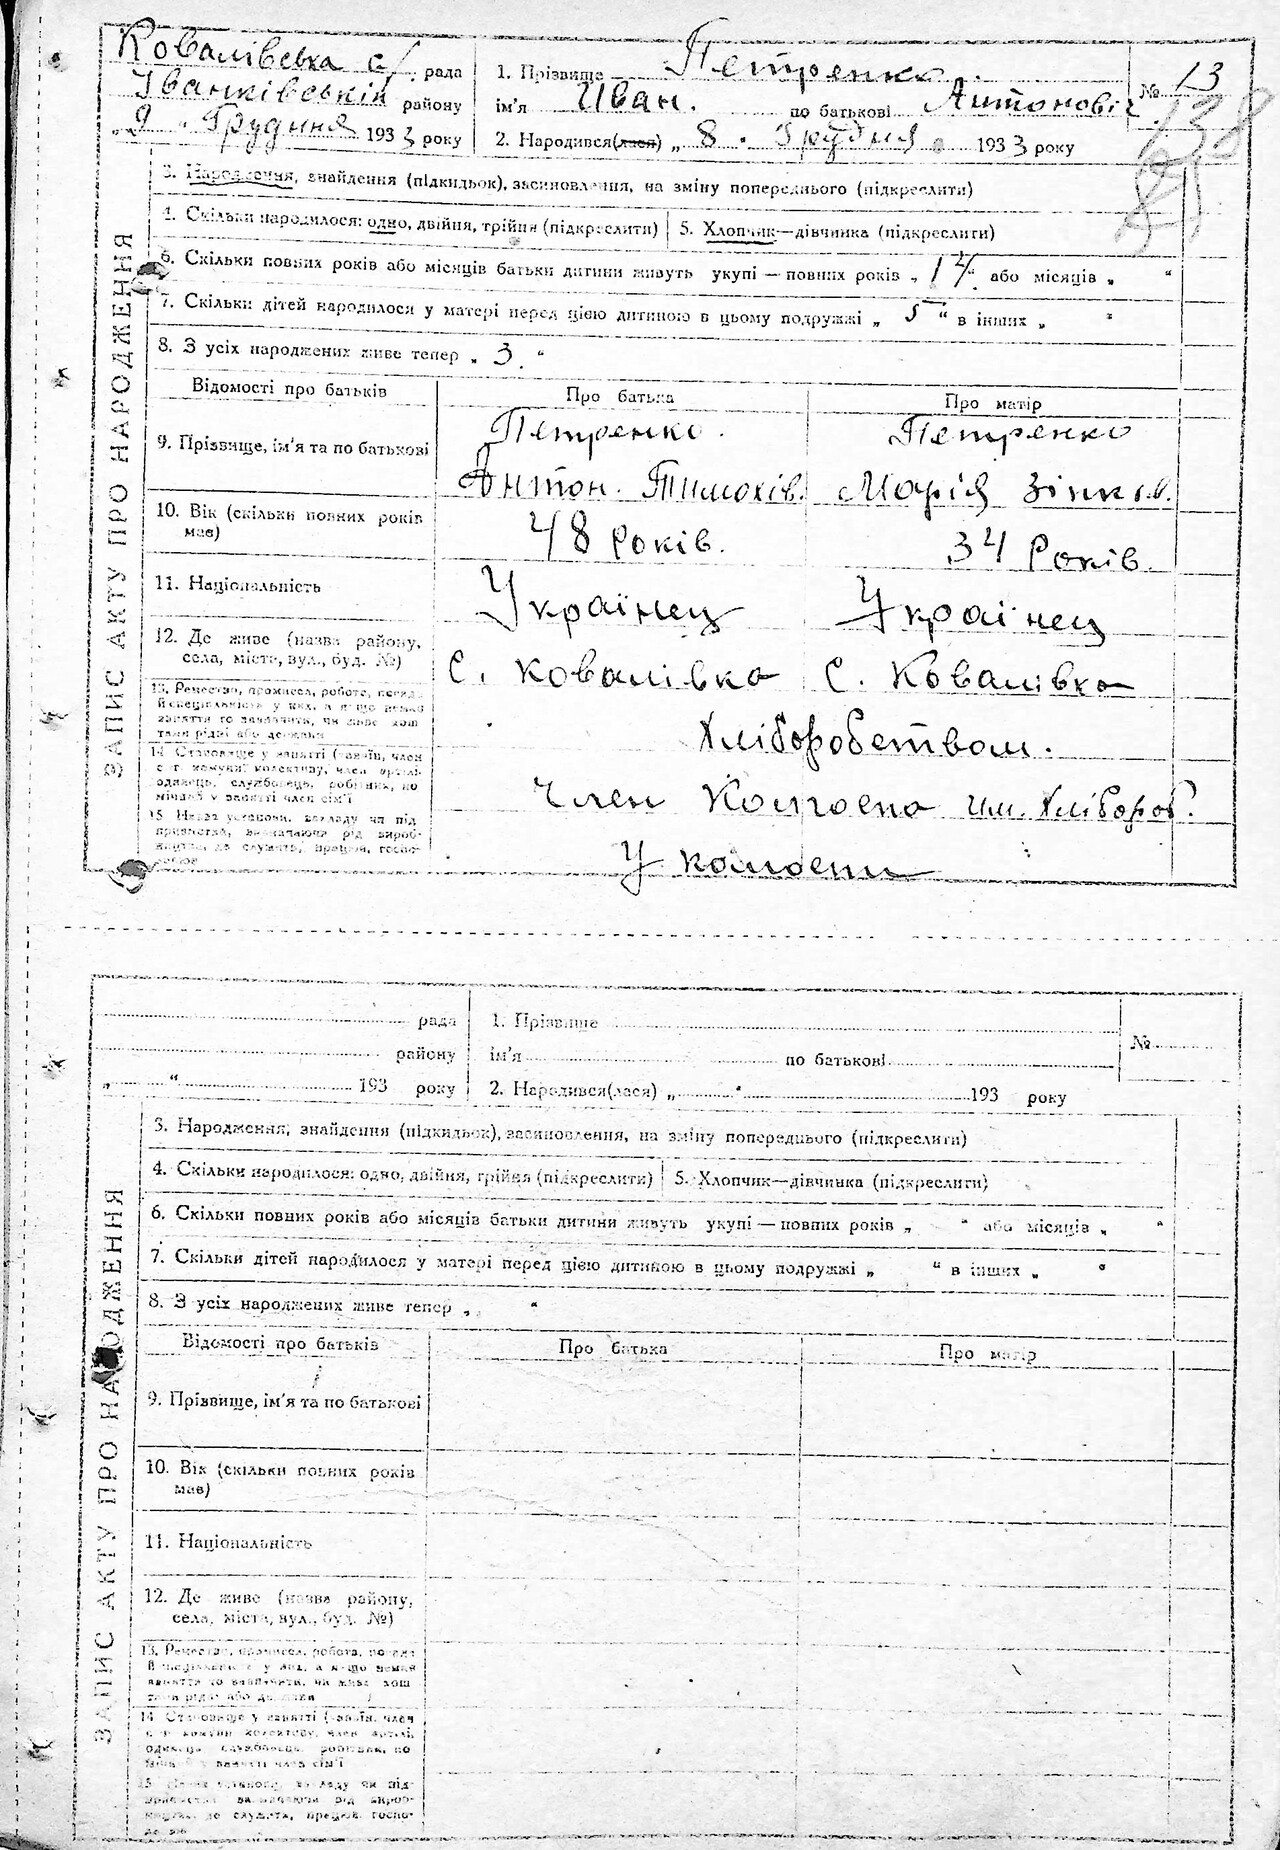 Ковалівська с/ рада
Іванківській району
„ 9 „ Грудня 1933 року
1. Прізвище Петренко.
ім'я Иван. по батькові Антоновіч
2. Народився(лася) „ 8 „ Грудня 1933 року
№ 13
138
ЗАПИС АКТУ ПРО НАРОДЖЕННЯ
3. Народження, знайдення (підкидьок), засиновлення, на зміну попереднього (підкреслити)
4. Скільки народилося: одно, двійня, трійня (підкреслити) 5. Хлопчик—дівчинка (підкреслити)
6. Скільки повних років або місяців батьки дитини живуть укупі — повних років „ “ або місяців „ “
7. Скільки дітей народилося у матері перед цією дитиною в цьому подружжі „ 5 “ в інших „ “
8. З усіх народжених живе тепер „ 3. “
Відомості про батьків Про батька Про матір
9. Прізвище, ім'я та по батькові
Петренко. Петренко
Антон. Тимохів. Марія Зінков.
10. Вік (скільки повних років мав)
48 років. 34 Років.
11. Національність
Українец Українец
12. Де живе (назва району,
села, місто, вул., буд. №)
с. Ковалівка с. Ковалівка
13. Ремество, промисел, робота, посада
й спеціяльність у них, а якщо нема
заняття то зазначити, чи живе кош
тами рідні або держави
Хліборобством.
14. Становище у занятті (хазяїн, член
с.-г. комуни, колективу, член артілі,
одинець, службовець, робітник, по
мічний у занятті член сім'ї
Член Колгоспа им. Хлібороб.
15. Назва установи, закладу чи під
приємства, визначаючи рід вироб-
ництва, де служить, працює, госпо-
дарює
У колгоспи
рада
району
„ “ 193 року
1. Прізвище
ім'я по батькові
2. Народився(лася) „ “ 193 року
№
ЗАПИС АКТУ ПРО НАРОДЖЕННЯ
3. Народження, знайдення (підкидьок), засиновлення, на зміну попереднього (підкреслити)
4. Скільки народилося: одно, двійня, трійня (підкреслити) 5. Хлопчик—дівчинка (підкреслити)
6. Скільки повних років або місяців батьки дитини живуть укупі — повних років „ “ або місяців „ “
7. Скільки дітей народилося у матері перед цією дитиною в цьому подружжі „ “ в інших „ “
8. З усіх народжених живе тепер „ “
Відомості про батьків Про батька Про матір
9. Прізвище, ім'я та по батькові
10. Вік (скільки повних років
мав)
11. Національність
12. Де живе (назва району,
села, міста, вул., буд. №)
13. Ремество, промисел, робота, посада
й спеціяльність у них, а якщо нема
заняття то зазначити, чи живе кош
тами рідні або держави
14. Становище у занятті (хазяїн, член
с.-г. комуни, колективу, член артілі,
одинець, службовець, робітник, по
мічний у занятті член сім'ї
15. Назва установи, закладу чи під-
приємства, визначаючи рід вироб-
ництва, де служить, працює, госпо-
дарює